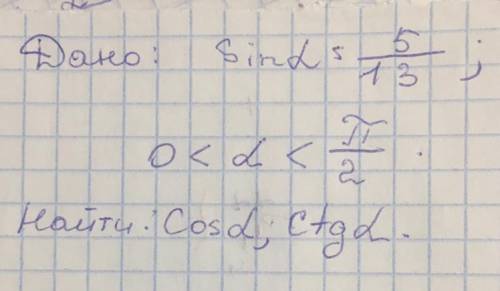 Дано: Sinα = 5/13;
0 < α < π/2.
Найти: Cosα; Ctgα.